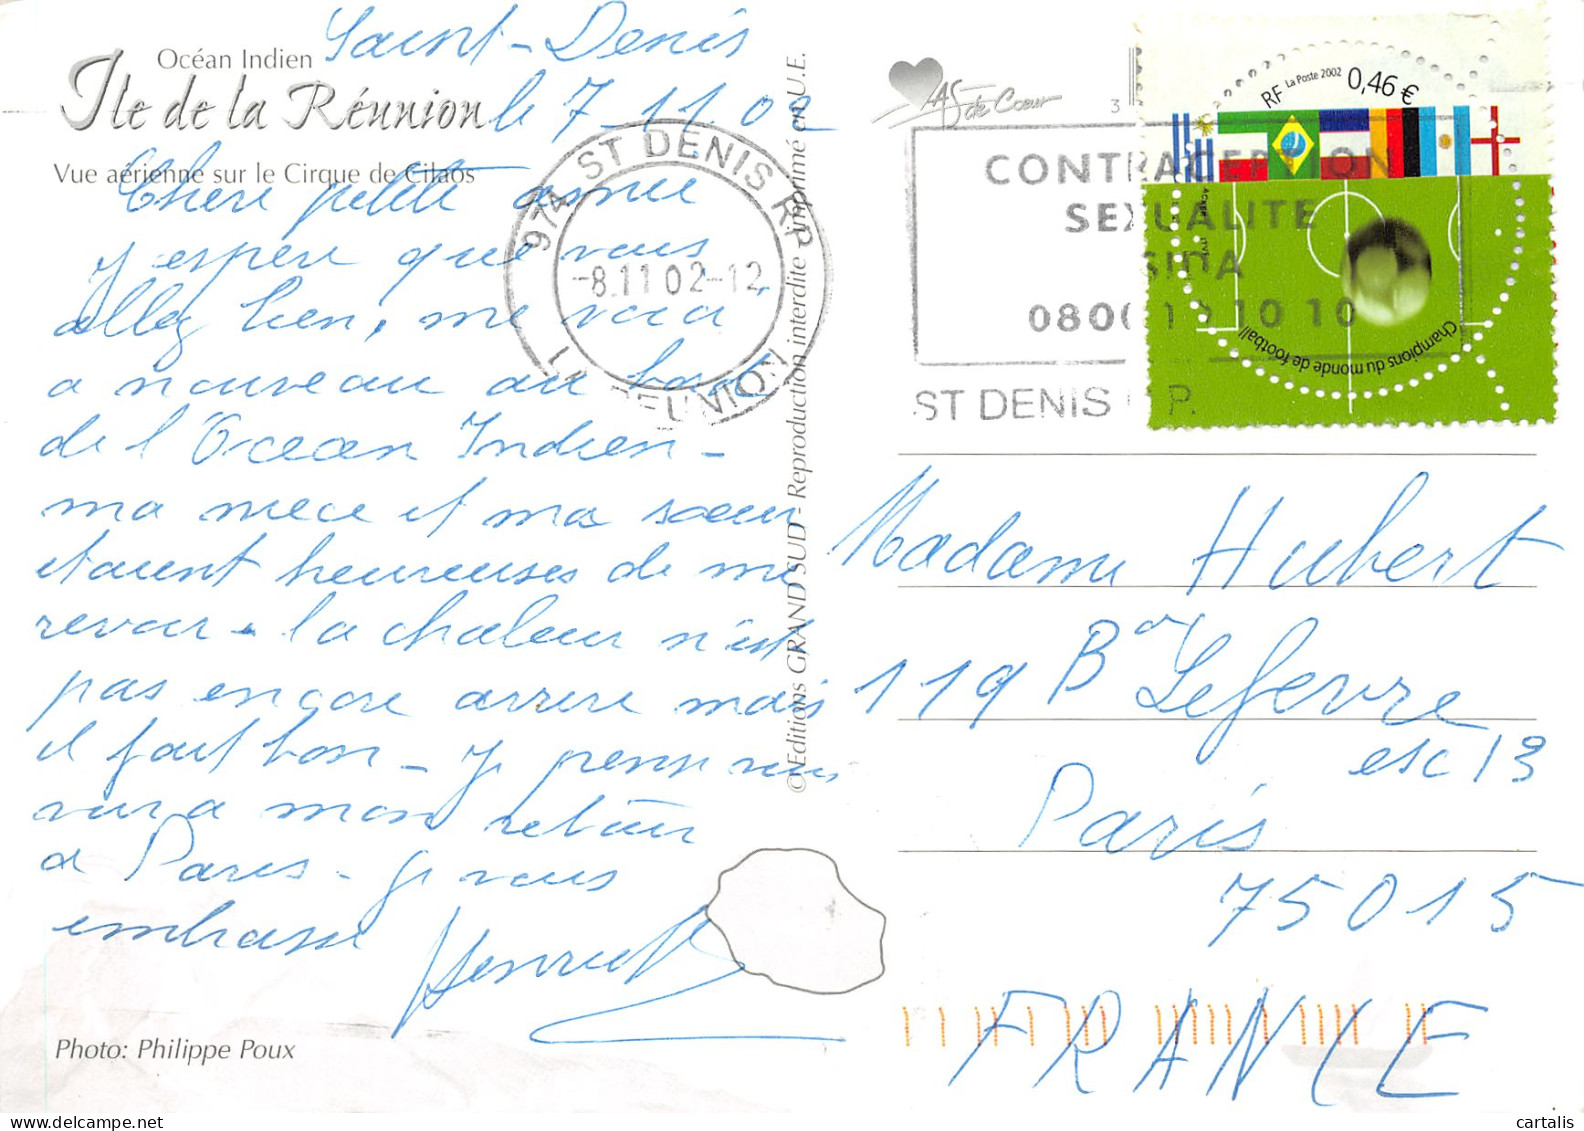 Saint-Denis
Océan Indien
Ile de la Réunion
le 7-11 02
Vue aérienne sur le Cirque de Cilaos
Chère petite amie
J'espère que vous
allez bien, me voici
a nouveau au bord
de l'Ocean Indien -
ma niece et ma sœur
etaient heureuses de me
revoir - la chaleur n'est
pas encore arrivée mais
il fait bon - Je pense vous
voir a mon retour
a Paris - Je vous
embrasse
Photo: Philippe Poux
974 ST DENIS R.P
-8.11 02-12
LA REUNION
© Editions GRAND SUD - Reproduction interdite - imprimé en U.E.
AS de Cœur
3
RF La Poste 2002 0,46 €
Champions du monde de football
CONTRACEPTION
SEXUALITE
SIDA
ST DENIS R.P.
Madame Hubert
119 Bd Lefevre
esc 13
Paris
75015
FRANCE
cartalis